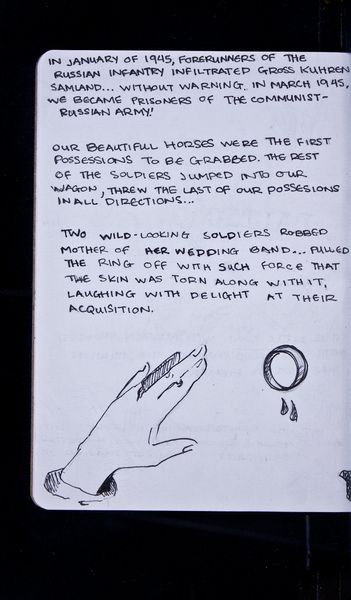 IN JANUARY OF 1945, FORERUNNERS OF THE
RUSSIAN INFANTRY INFILTRATED GROSS KUHREN
SAMLAND... WITHOUT WARNING. IN MARCH 1945,
WE BECAME PRISONERS OF THE COMMUNIST-
RUSSIAN ARMY!
OUR BEAUTIFUL HORSES WERE THE FIRST
POSSESSIONS TO BE GRABBED. THE REST
OF THE SOLDIERS JUMPED INTO OUR
WAGON, THREW THE LAST OF OUR POSSESIONS
IN ALL DIRECTIONS...
TWO WILD-LOOKING SOLDIERS ROBBED
MOTHER OF HER WEDDING BAND... PULLED
THE RING OFF WITH SUCH FORCE THAT
THE SKIN WAS TORN ALONG WITH IT,
LAUGHING WITH DELIGHT AT THEIR
ACQUISITION.